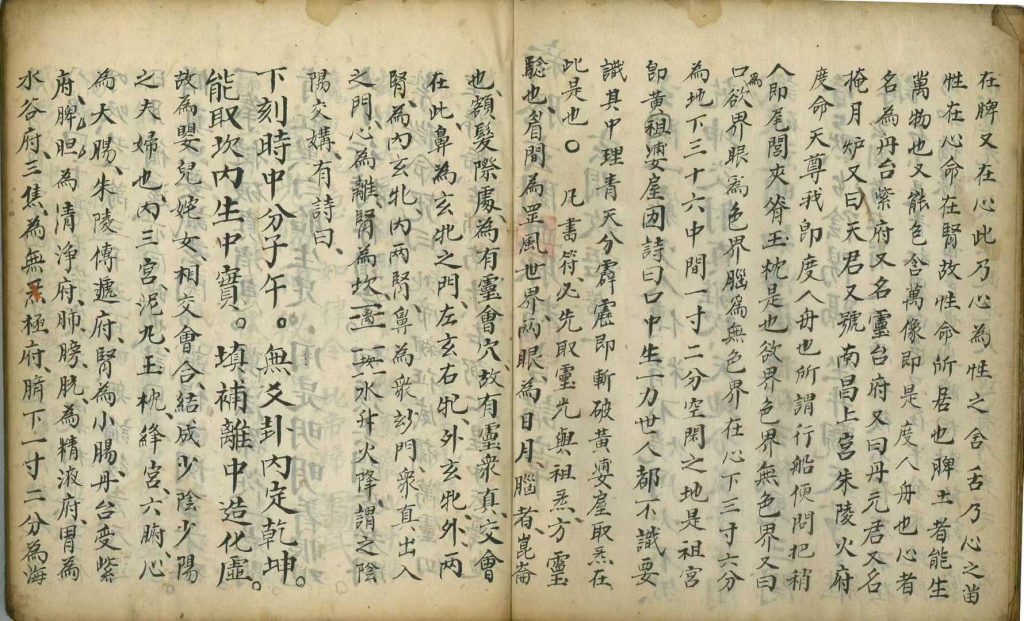 在脾又在心此乃心為性之舍舌乃心之苗
性在心命在腎故性命所居也脾土者能生
萬物也又能色含萬像即是度人舟也心者
名為丹台紫府又名靈台府又曰丹元君又名
掩月炉又曰天君又號南昌上宮朱陵火府
度命天尊我即度人舟也所謂行船便問把稍
人即尾閭夾脊玉枕是也欲界色界無色界又曰
口為欲界眼為色界腦為無色界在心下三寸六分
為地下三十六中間一寸二分空閑之地是祖宮
即黃祖婆屋囯詩曰口中生一力世人都不識要
識其中理青天分霹靂即斬破黃婆屋取炁在
此是也〇凡書符必先取靈光與祖炁方靈
驗也眉間為罡風世界兩眼為日月腦者崑崙
也額髮際處為有靈會穴故有靈衆真交會
在此鼻為玄牝之門左玄右牝外玄牝外兩
腎為内玄牝内兩腎鼻為衆妙門衆真出入
之門心為離腎為坎水升火降謂之陰
陽交媾有詩曰
下刻時中分子午。無爻卦内定乾坤。
能取坎内生中實。填補離中造化虛。
故為嬰兒姹女相交會合結成少陰少陽
之夫婦也内三宮泥丸玉枕絳宮六腑心
為大腸朱陵傳遞府腎為小腸丹台受紫
府脾胆為清淨府肺膀胱為精液府胃為
水谷府三焦為無極府臍下一寸二分為海